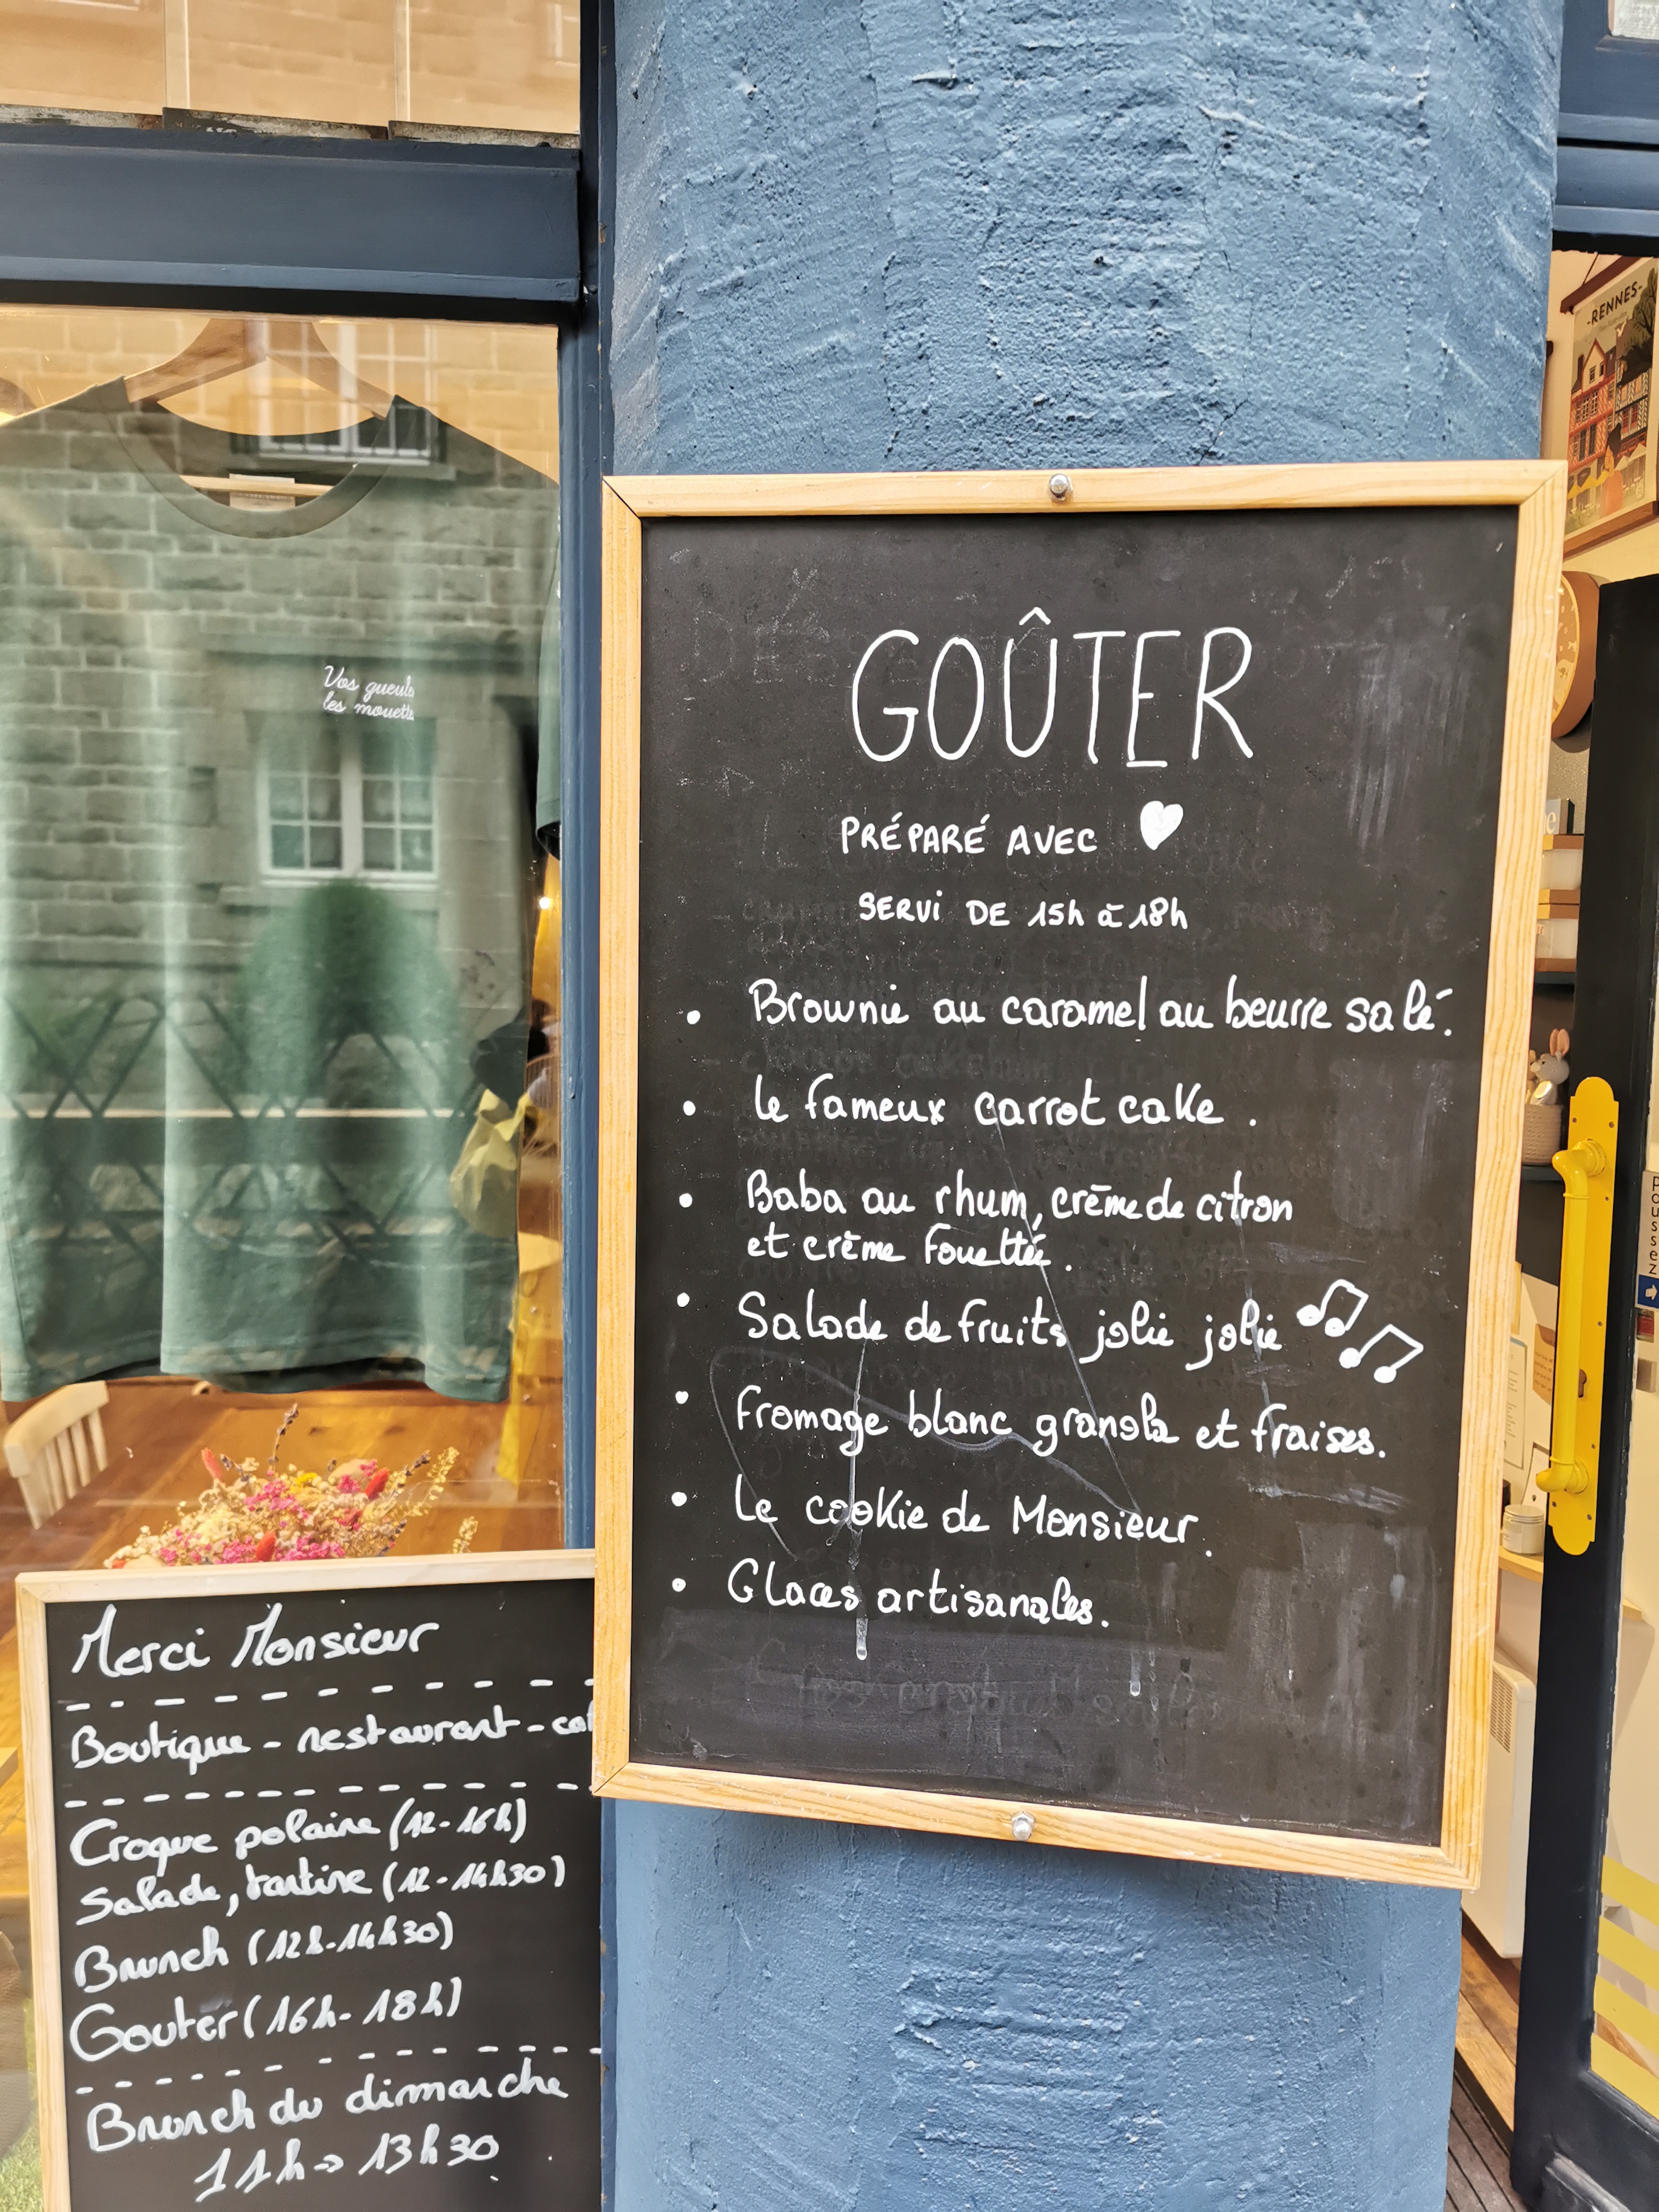 -RENNES-
Vos gueul
les mouett
GOÛTER
PRÉPARÉ AVEC
SERVI DE 15h à 18h
• Brownie au caramel au beurre salé.
• Le fameux carrot cake.
• Baba au rhum, crème de citron
et crème fouettée.
• Salade de fruits jolie jolie
• Fromage blanc granola et fraises.
• Le cookie de Monsieur.
• Glaces artisanales.
Poussez
Merci Monsieur
Boutique - restaurant - caf
Croque polaire (12-16h)
Salade, tartine (12-14h30)
Brunch (12h-14h30)
Gouter (16h-18h)
Brunch du dimanche
11h → 13h30